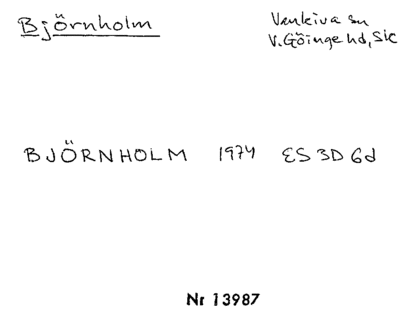 Björnholm
Vankiva sn
V. Göinge hd, Sk
BJÖRNHOLM 1974 ES 3D 6d
Nr 13987